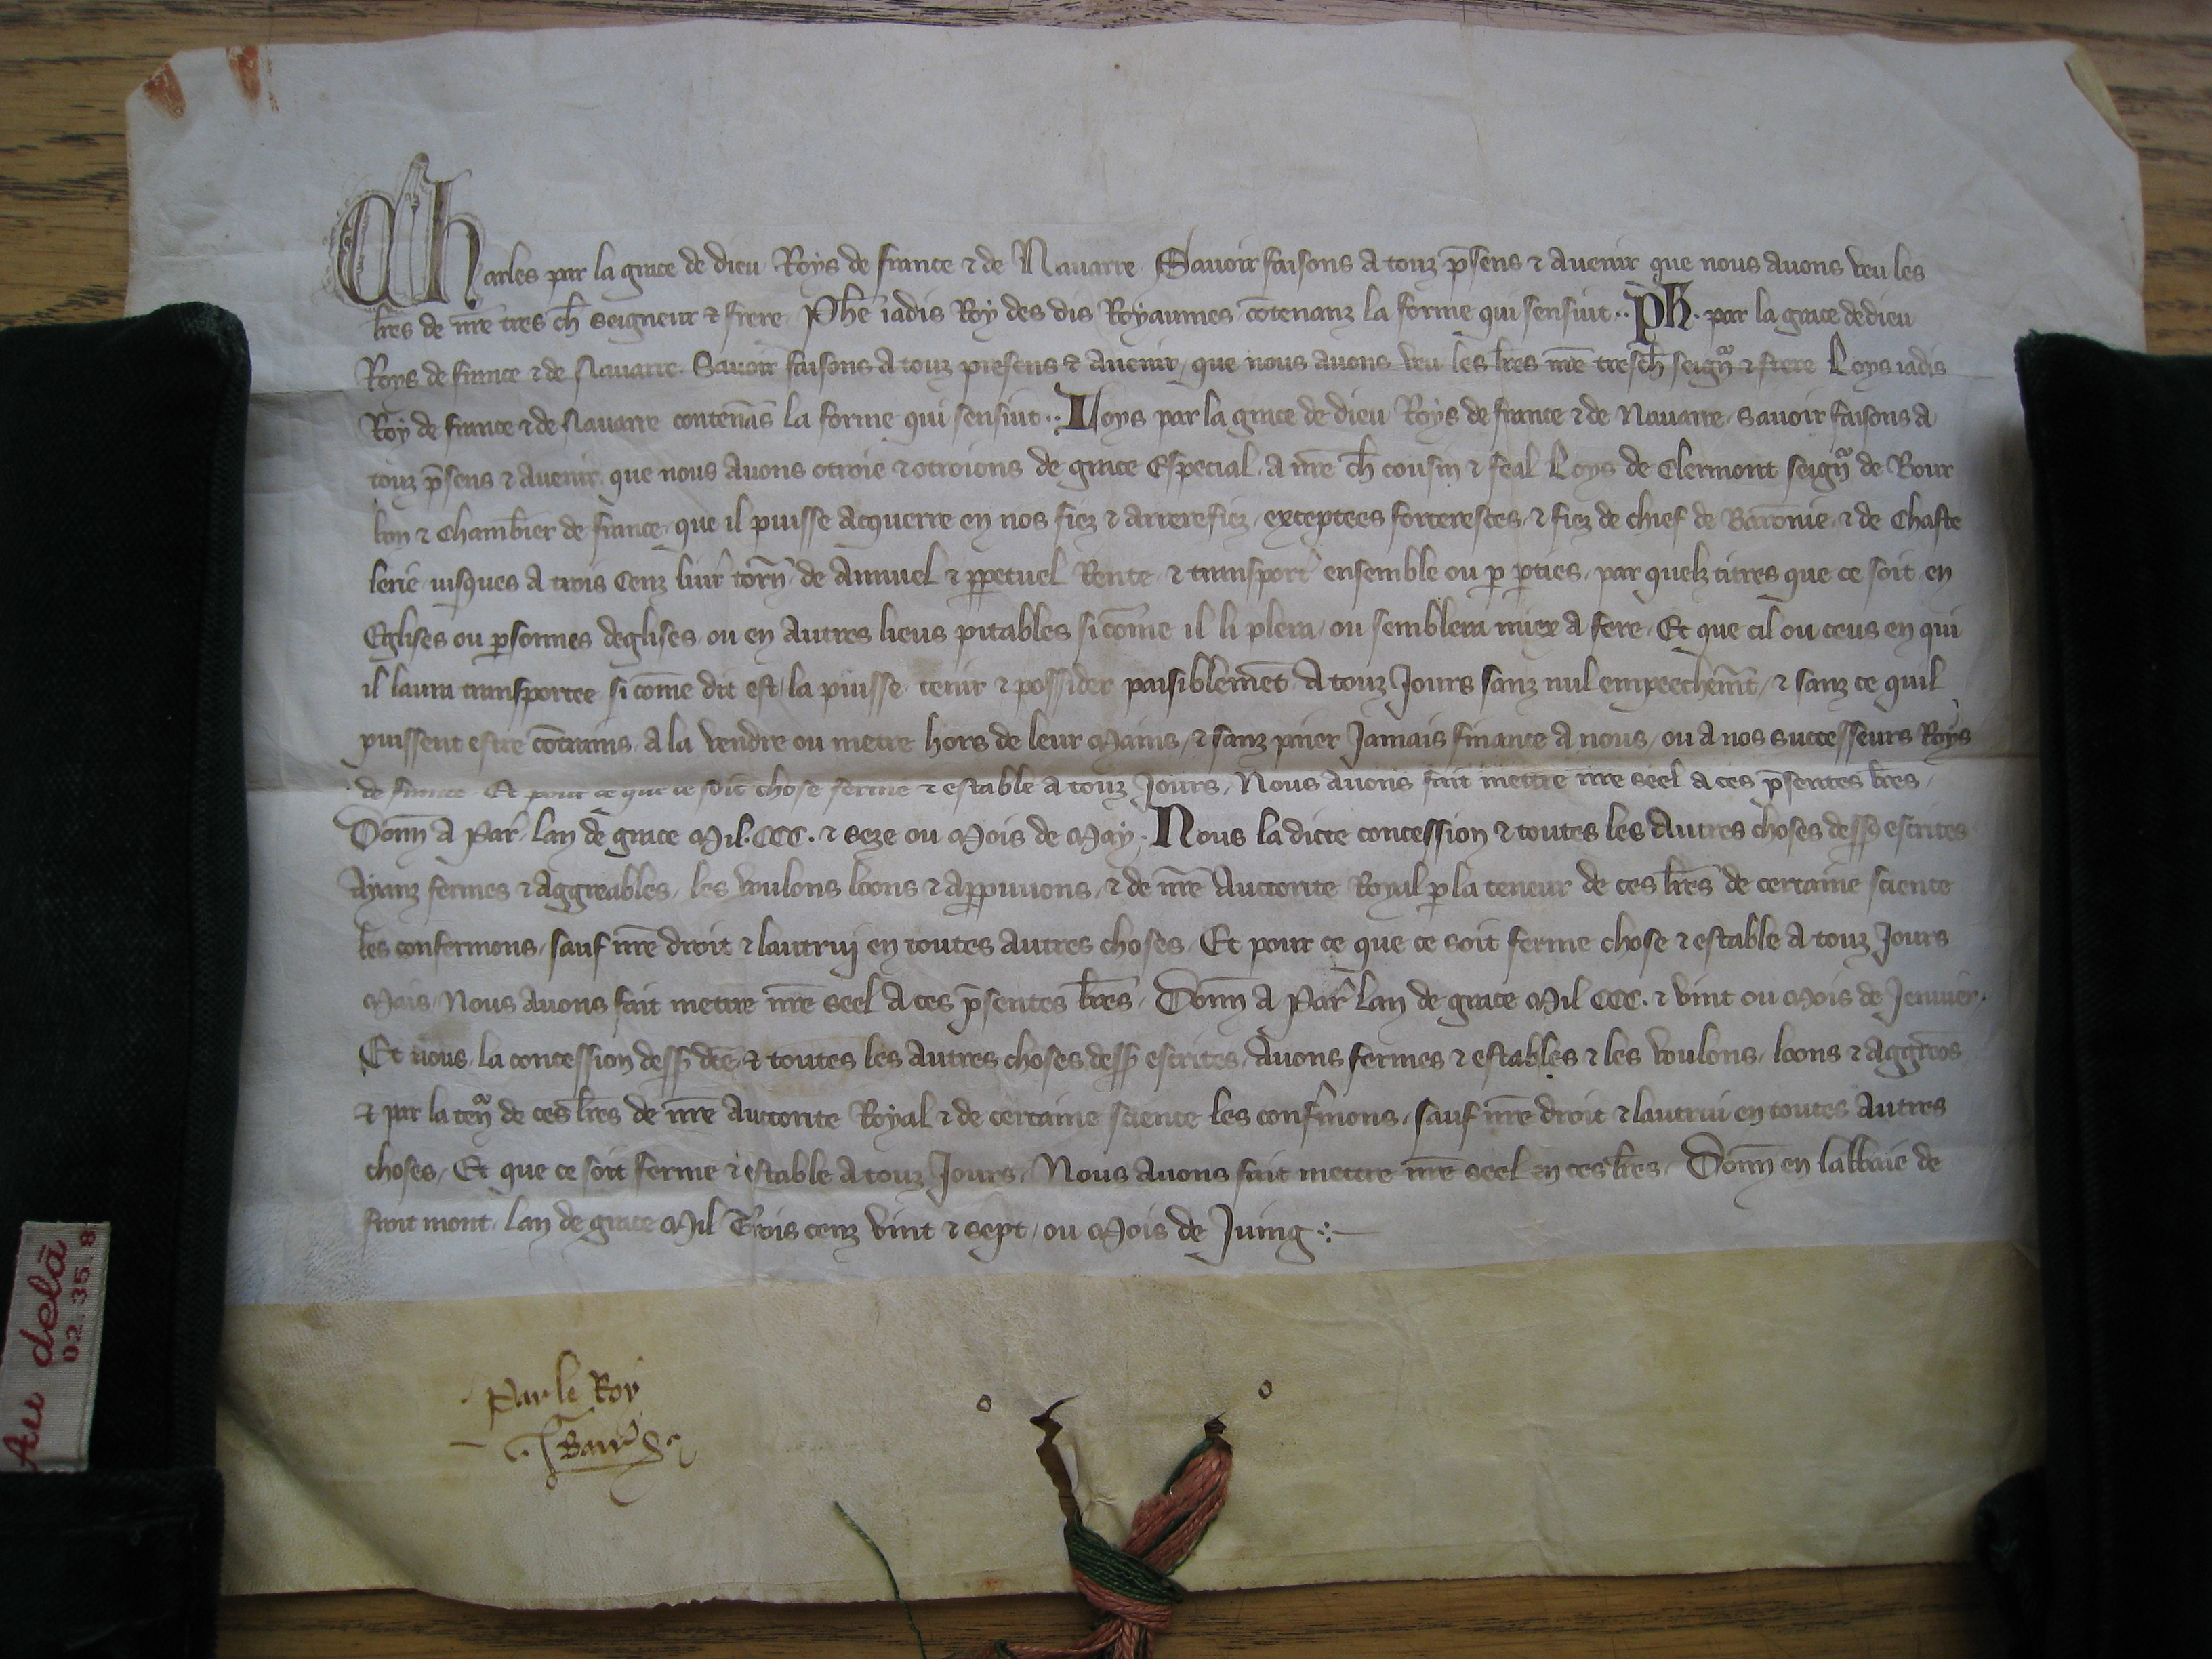 Charles par la grace de dieu Roys de france & de Nauarre Sauoir faisons a touz p̄sens & auenir que nous auons veu les
lr̄es de nr̄e tres ch̄ seigneur & frere Ph̄e iadis Roy des dis Royaumes cōtenanz la forme qui sensuit .. Ph̄. par la grace de dieu
Roys de france & de Nauarre Sauoir faisons a touz presens & auenir, que nous auons veu les lr̄es nr̄e tresch̄ seign̄ & frere Loys iadis
Roy de france & de Nauarre contenās la forme qui sensuit .. Loys par la grace de dieu Roys de france & de Nauarre, Sauoir faisons a
touz p̄sens & auenir, que nous auons otroie & otroions de grace Especial, a nr̄e ch̄ cousin & feal Loys de Clermont seign̄ de Bour
bon & Chamb̄ier de france, que il puisse acquerre en nos fiez & arrerefiez, exceptees forteresces, & fiez de chief de Baronie, & de Chaste
lerie iusques a trois Cenz liur̄ torn̄ de Annuel & p̱petuel Rente, & transport̄ ensemble ou p̱ p̱ties, par quelz titres que ce soit, en
Eglises ou p̱sonnes deglises, ou en autres lieus pitables si cōme il li plera, ou semblera miex a fere, Et que cil ou ceus en qui
il laura transportee si cōme dit est, la puisse tenir & possider paisiblemēt, a touz Jours sanz nul empeechem̄t, & sanz ce quil
puissent estre cōtrains, a la vendre ou metre hors de leur Mains, & sanz paier Jamais finance a nous, ou a nos successeurs Roys
de france Et pour ce que ce soit chose ferme & estable a touz Jours, Nous auons fait mettre nr̄e seel a ces p̄sentes lr̄es,
Donn̄ a Par̄ lan de grace Mil. CCC. & seze ou Mois de May. Nous la dicte concession & toutes les autres choses dess̄ escrites
Ayanz fermes & aggreables, les voulons loons & app̱uuons, & de nr̄e Auctorite Royal p̱ la teneur de ces lr̄es de certaine science
les confermons, sauf nr̄e droit & lautruj en toutes autres choses, Et pour ce que ce soit ferme chose & estable a touz Jours
Mais, Nous auons fait mettre nr̄e seel a ces p̄sentes lr̄es, Donn̄ a Par̄ lan de grace Mil CCC. & vint ou Mois de Jenuier,
Et nous, la concession dess̄ dc̄e, & toutes les autres choses dess̄ escrites, Auons fermes & estables & les voulons, loons & aggreōs
& par la ten̄ de ces lr̄es de nr̄e Auctorite Royal & de certaine science les conf̄mons, sauf nr̄e droit & lautrui en toutes autres
choses, Et que ce soit ferme & estable a touz Jours, Nous auons fait mettre nr̄e seel en ces lr̄es, Donn̄ en labbaie de
froit mont, lan de grace Mil Trois cenz vint & sept, ou Mois de Juing
Par le Roy
Au delà
02.35.8